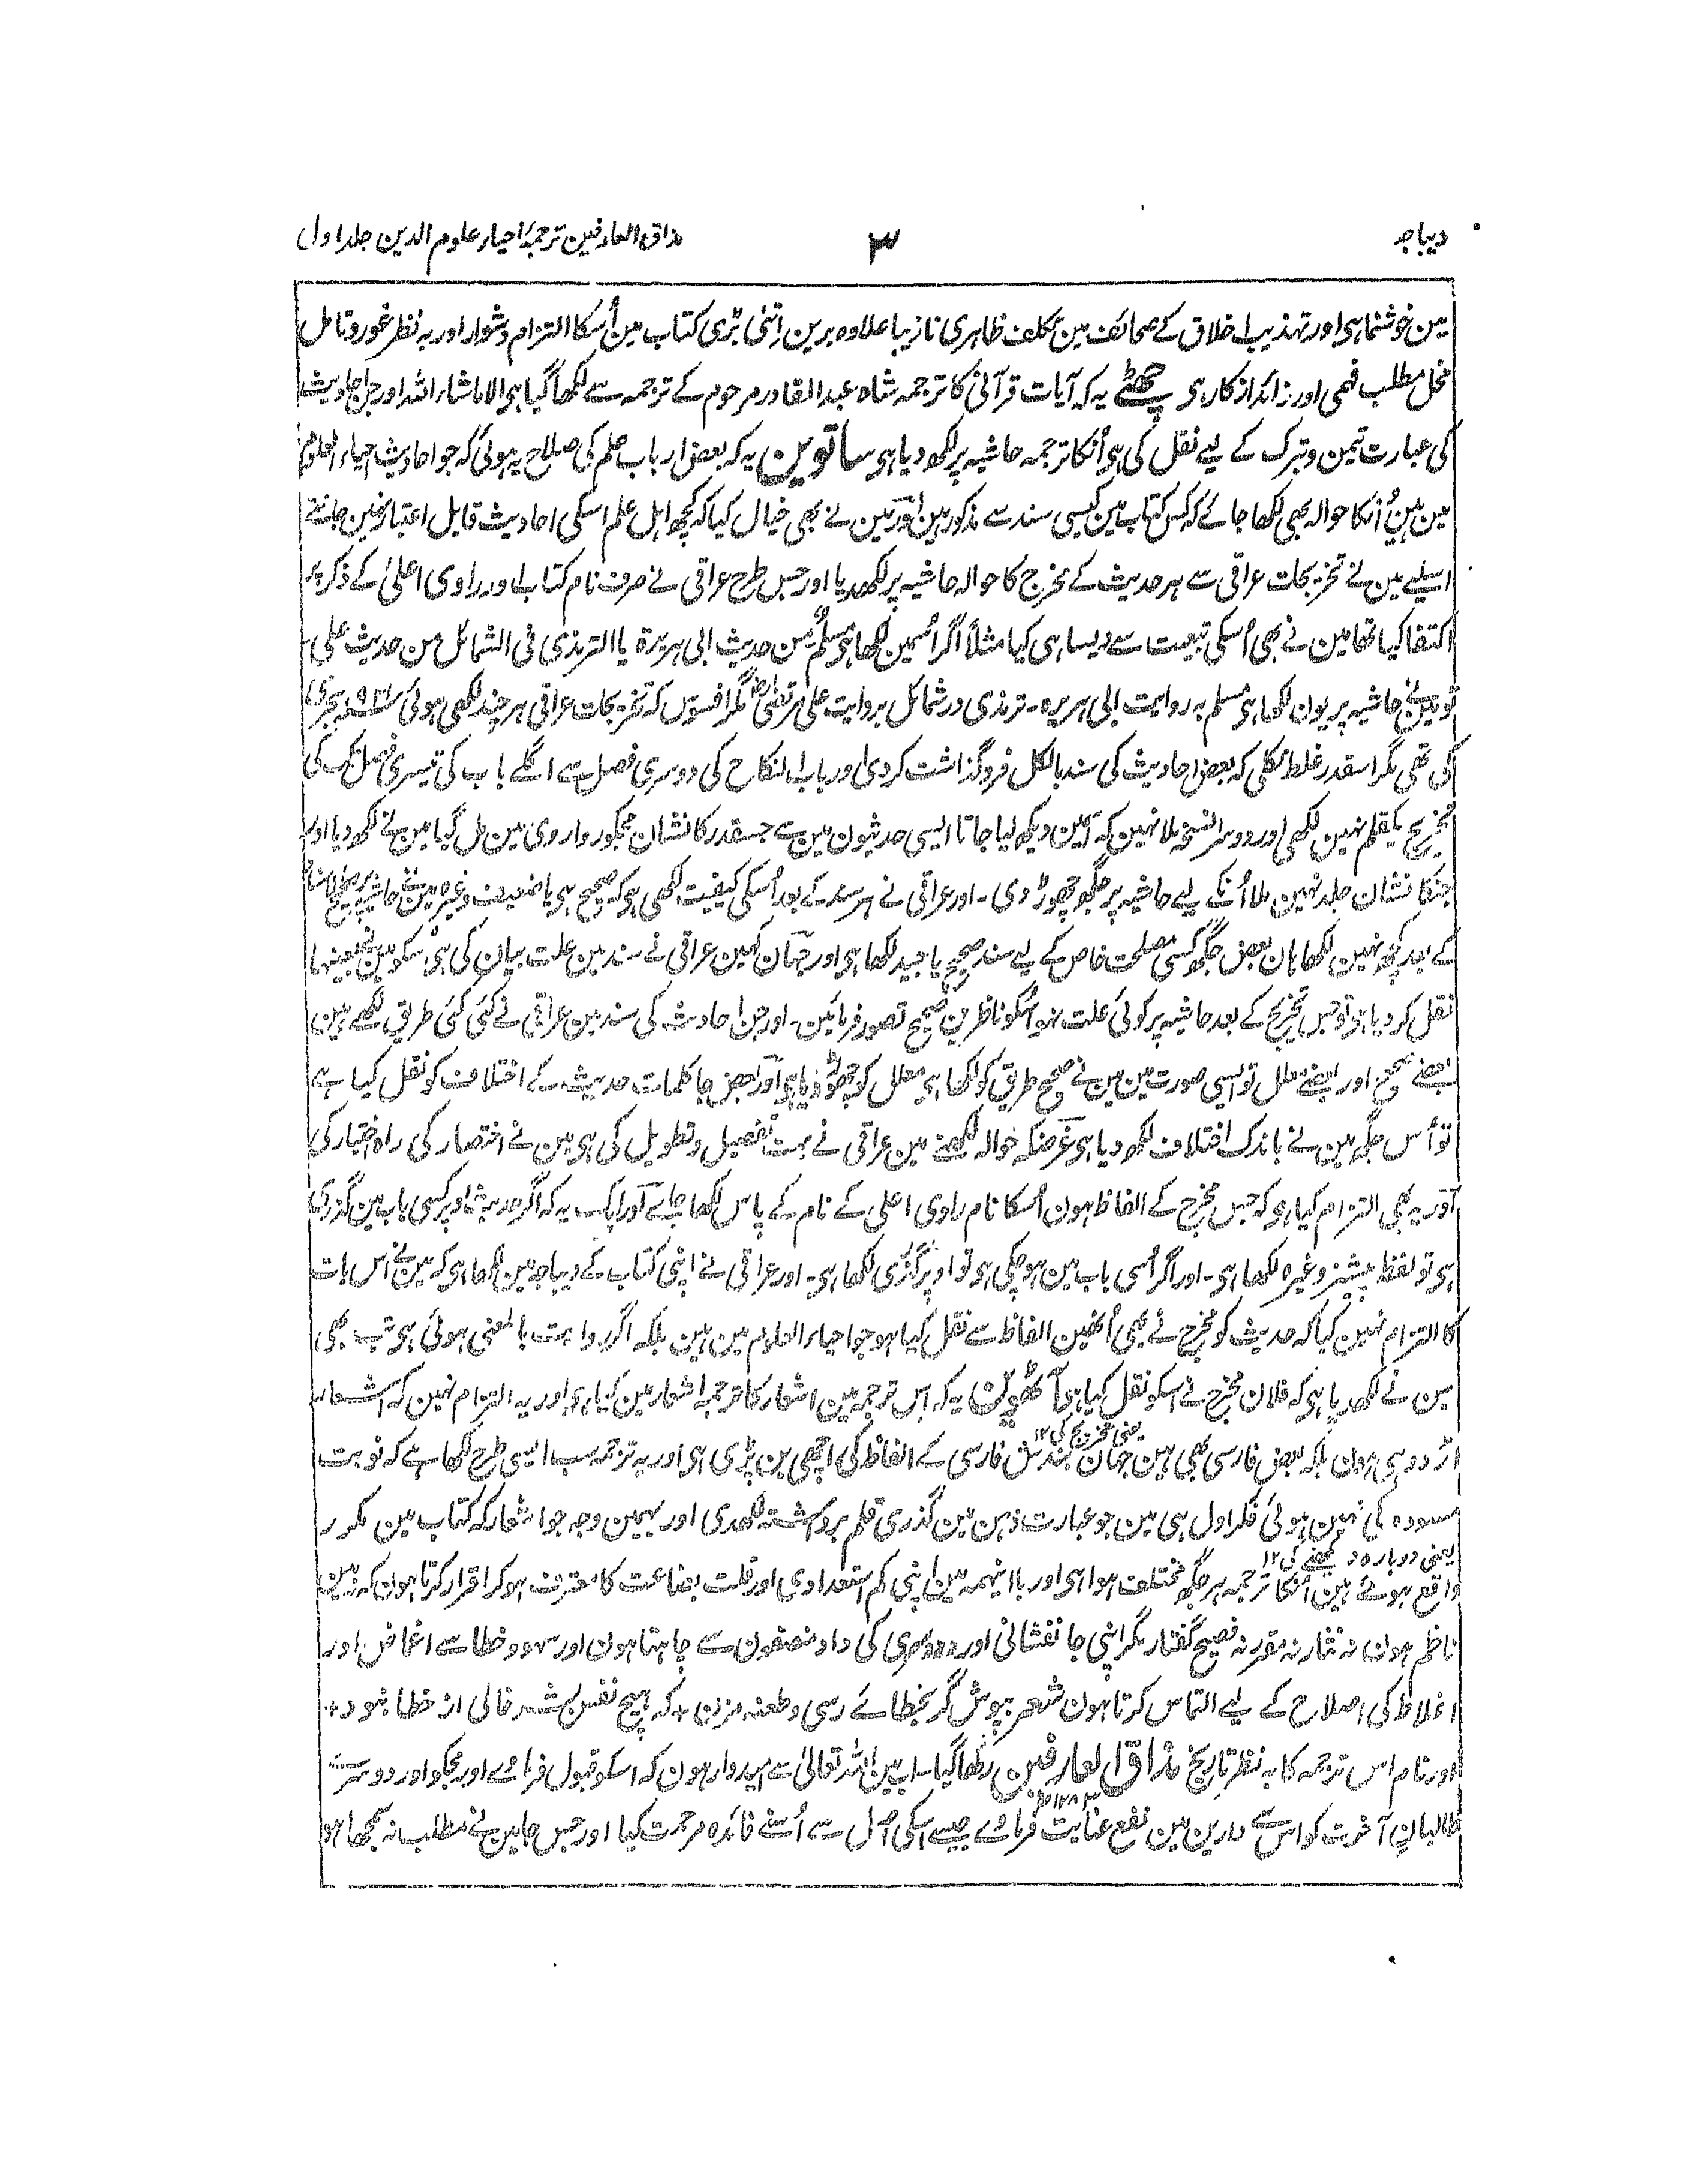 دیباجہ
۳
مذاق العارفین ترجمۂ احیاء علوم الدین جلد اول
مین خوشنما ہی اور تہذیب اخلاق کے صحائف مین تکلف ظاہری نازیبا علاوہ برین اتنی بڑی کتاب مین اُسکا التزام دشوار اور بہ نظر غور و تامل
مخل مطلب فہمی اور زائد از کار ہی چھٹے یہ کہ آیات قرآنی کا ترجمہ شاہ عبد القادر مرحوم کے ترجمہ سے لکھا گیا ہی الا ماشاء اللہ اور جن احادیث
کی عبارت تیمن و تبرک کے لیے نقل کی ہی اُنکا ترجمہ حاشیہ پر لکھ دیا ہی ساتوین یہ کہ بعض ارباب علم کی صلاح یہ ہوئی کہ جو احادیث احیاء العلوم
مین ہین اُنکا حوالہ بھی لکھا جائے کہ کس کتاب مین کیسی سند سے مذکور ہین اور مین نے بھی خیال کیا کہ کچھ اہل علم اسکی احادیث قابل اعتبار نہین جانتے
اسلیے مین نے تخریجات عراقی سے ہر حدیث کے مخرج کا حوالہ حاشیہ پر لکھدیا اور جس طرح عراقی نے صرف نام کتاب اور راوی اعلیٰ کے ذکر پر
اکتفا کیا تھا مین نے بھی اُسکی تبعیت سے ویسا ہی کیا مثلاً اگر اُسمین لکھا ہی مسلم من حدیث ابی ہریرۃ یا الترمذی فی الشمائل من حدیث علی
تو مین نے حاشیہ پر یون لکھا ہی مسلم بہ روایت ابی ہریرہ ۔ ترمذی در شمائل بروایت علی مرتضیٰ رض مگر افسوس کہ تخریجات عراقی ہر چند لکھی ہوئی ہجری
کی تھی مگر اسقدر غلط نکلی کہ بعض احادیث کی سند بالکل فروگذاشت کر دی اور باب النکاح کی دوسری فصل سے اگلے باب کی تیسری فصل تک کی
تخریج یکقلم نہین لکھی اور دوسرا نسخہ ملا نہین کہ اُسمین دیکھ لیا جاتا ایسی حدیثون مین سے جسقدر کا نشان مجکو روا روی مین مل گیا مین نے لکھ دیا اور
جنکا نشان جلد نہین ملا اُنکے لیے حاشیہ پر جگھ چھوڑ دی ۔ اور عراقی نے ہر سند کے بعد اُسکی کیفیت لکھی ہی کہ صحیح ہی یا ضعیف وغیرہ مین نے حاشیہ پر
کے بعد کچھ نہین لکھا ہان بعض جگھ کسی مصلحت خاص کے لیے سند صحیح یا جید لکھا ہی اور جہان کہین عراقی نے سند مین علت بیان کی ہی اسکو مین نے بعینہا
نقل کر دیا ہی تو جس تخریج کے بعد حاشیہ پر کوئی علت نہو اُسکو ناظرین صحیح تصور فرمائین ۔ اور جن احادیث کی سند مین عراقی نے کئی کئی طریق لکھے ہین
بعضے صحیح اور بعضے معلل تو ایسی صورت مین مین نے صحیح طریق کو لکھا ہی معلل کو چھوڑ دیا ہی اور بعض جا کلمات حدیث کے اختلاف کو نقل کیا ہے
تو اُس جگہ مین نے باندک اختلاف لکھ دیا ہی غرضکہ حوالہ لکھنے مین عراقی نے بہت تفصیل و تطویل کی ہی مین نے اختصار کی راہ اختیار کی
اور یہ بھی التزام کیا ہی کہ جس مخرج کے الفاظ ہون اُسکا نام راوی اعلی کے نام کے پاس لکھا جاے اور ایک یہ کہ اگر حدیث اوپر کسی باب مین گذری
ہی تو لفظ پیشتر وغیرہ لکھا ہی ۔ اور اگر اُسی باب مین ہو چکی ہی تو اوپر گذری لکھا ہی ۔ اور عراقی نے اپنی کتاب کے دیباجہ مین لکھا ہی کہ مین نے اس بات
کا التزام نہین کیا کہ حدیث کو مخرج نے بھی اُنھین الفاظ سے نقل کیا ہو جو احیاء العلوم مین ہین بلکہ اگر روایت بالمعنی ہوئی ہی تب بھی
مین نے لکھدیا ہی کہ فلان مخرج نے اسکو نقل کیا ہی آٹھوین یہ کہ اس ترجمہ مین اشعار کا ترجمہ اشعار مین کیا ہی اور یہ التزام نہین کہ اشعار
یعنی تخریج کی ۱۲
اردو ہی ہون بلکہ بعض فارسی بھی ہین جہان بندش فارسی کے الفاظ کی اچھی بن پڑی ہی اور یہ ترجمہ سب ایسی طرح لکھا ہے کہ نوبت
مسودہ کی نہین ہوئی فکر اول ہی مین جو عبارت ذہن مین گذری قلم برداشتہ لکھدی اور بہمین وجہ جو اشعار کہ کتاب مین مکرر
یعنی دوبارہ لکھنے کی ۱۲
واقع ہوئے ہین اُنکا ترجمہ ہر جگھ مختلف ہوا ہی اور با اینہمہ مین اپنی کم استعدادی اور قلت بضاعت کا معترف ہو کر اقرار کرتا ہون کہ نہ مین
ناظم ہون نہ نثار نہ مقرر نہ فصیح گفتار مگر اپنی جانفشانی اور کی داد منصفون سے چاہتا ہون اور سہو و خطا سے اغماض اور
اغلاط کی اصلاح کے لیے التماس کرتا ہون شعر بپوش گر بخطائے رسی و طعنہ مزن ÷ کہ ہیچ نفس بشر خالی از خطا نبود ÷
اور نام اس ترجمہ کا بہ نظر تاریخ مذاق العارفین رکھا گیا ۔ اب مین اللہ تعالیٰ سے امیدوار ہون کہ اسکو قبول فرماوے اور مجکو اور دوسرے
طالبان آخرت کو اس سے دارین مین نفع عنایت فرماوے جیسے اسکی اصل سے اُسنے فائدہ مرحمت کیا اور جس جا مین نے مطلب نہ سمجھا ہو